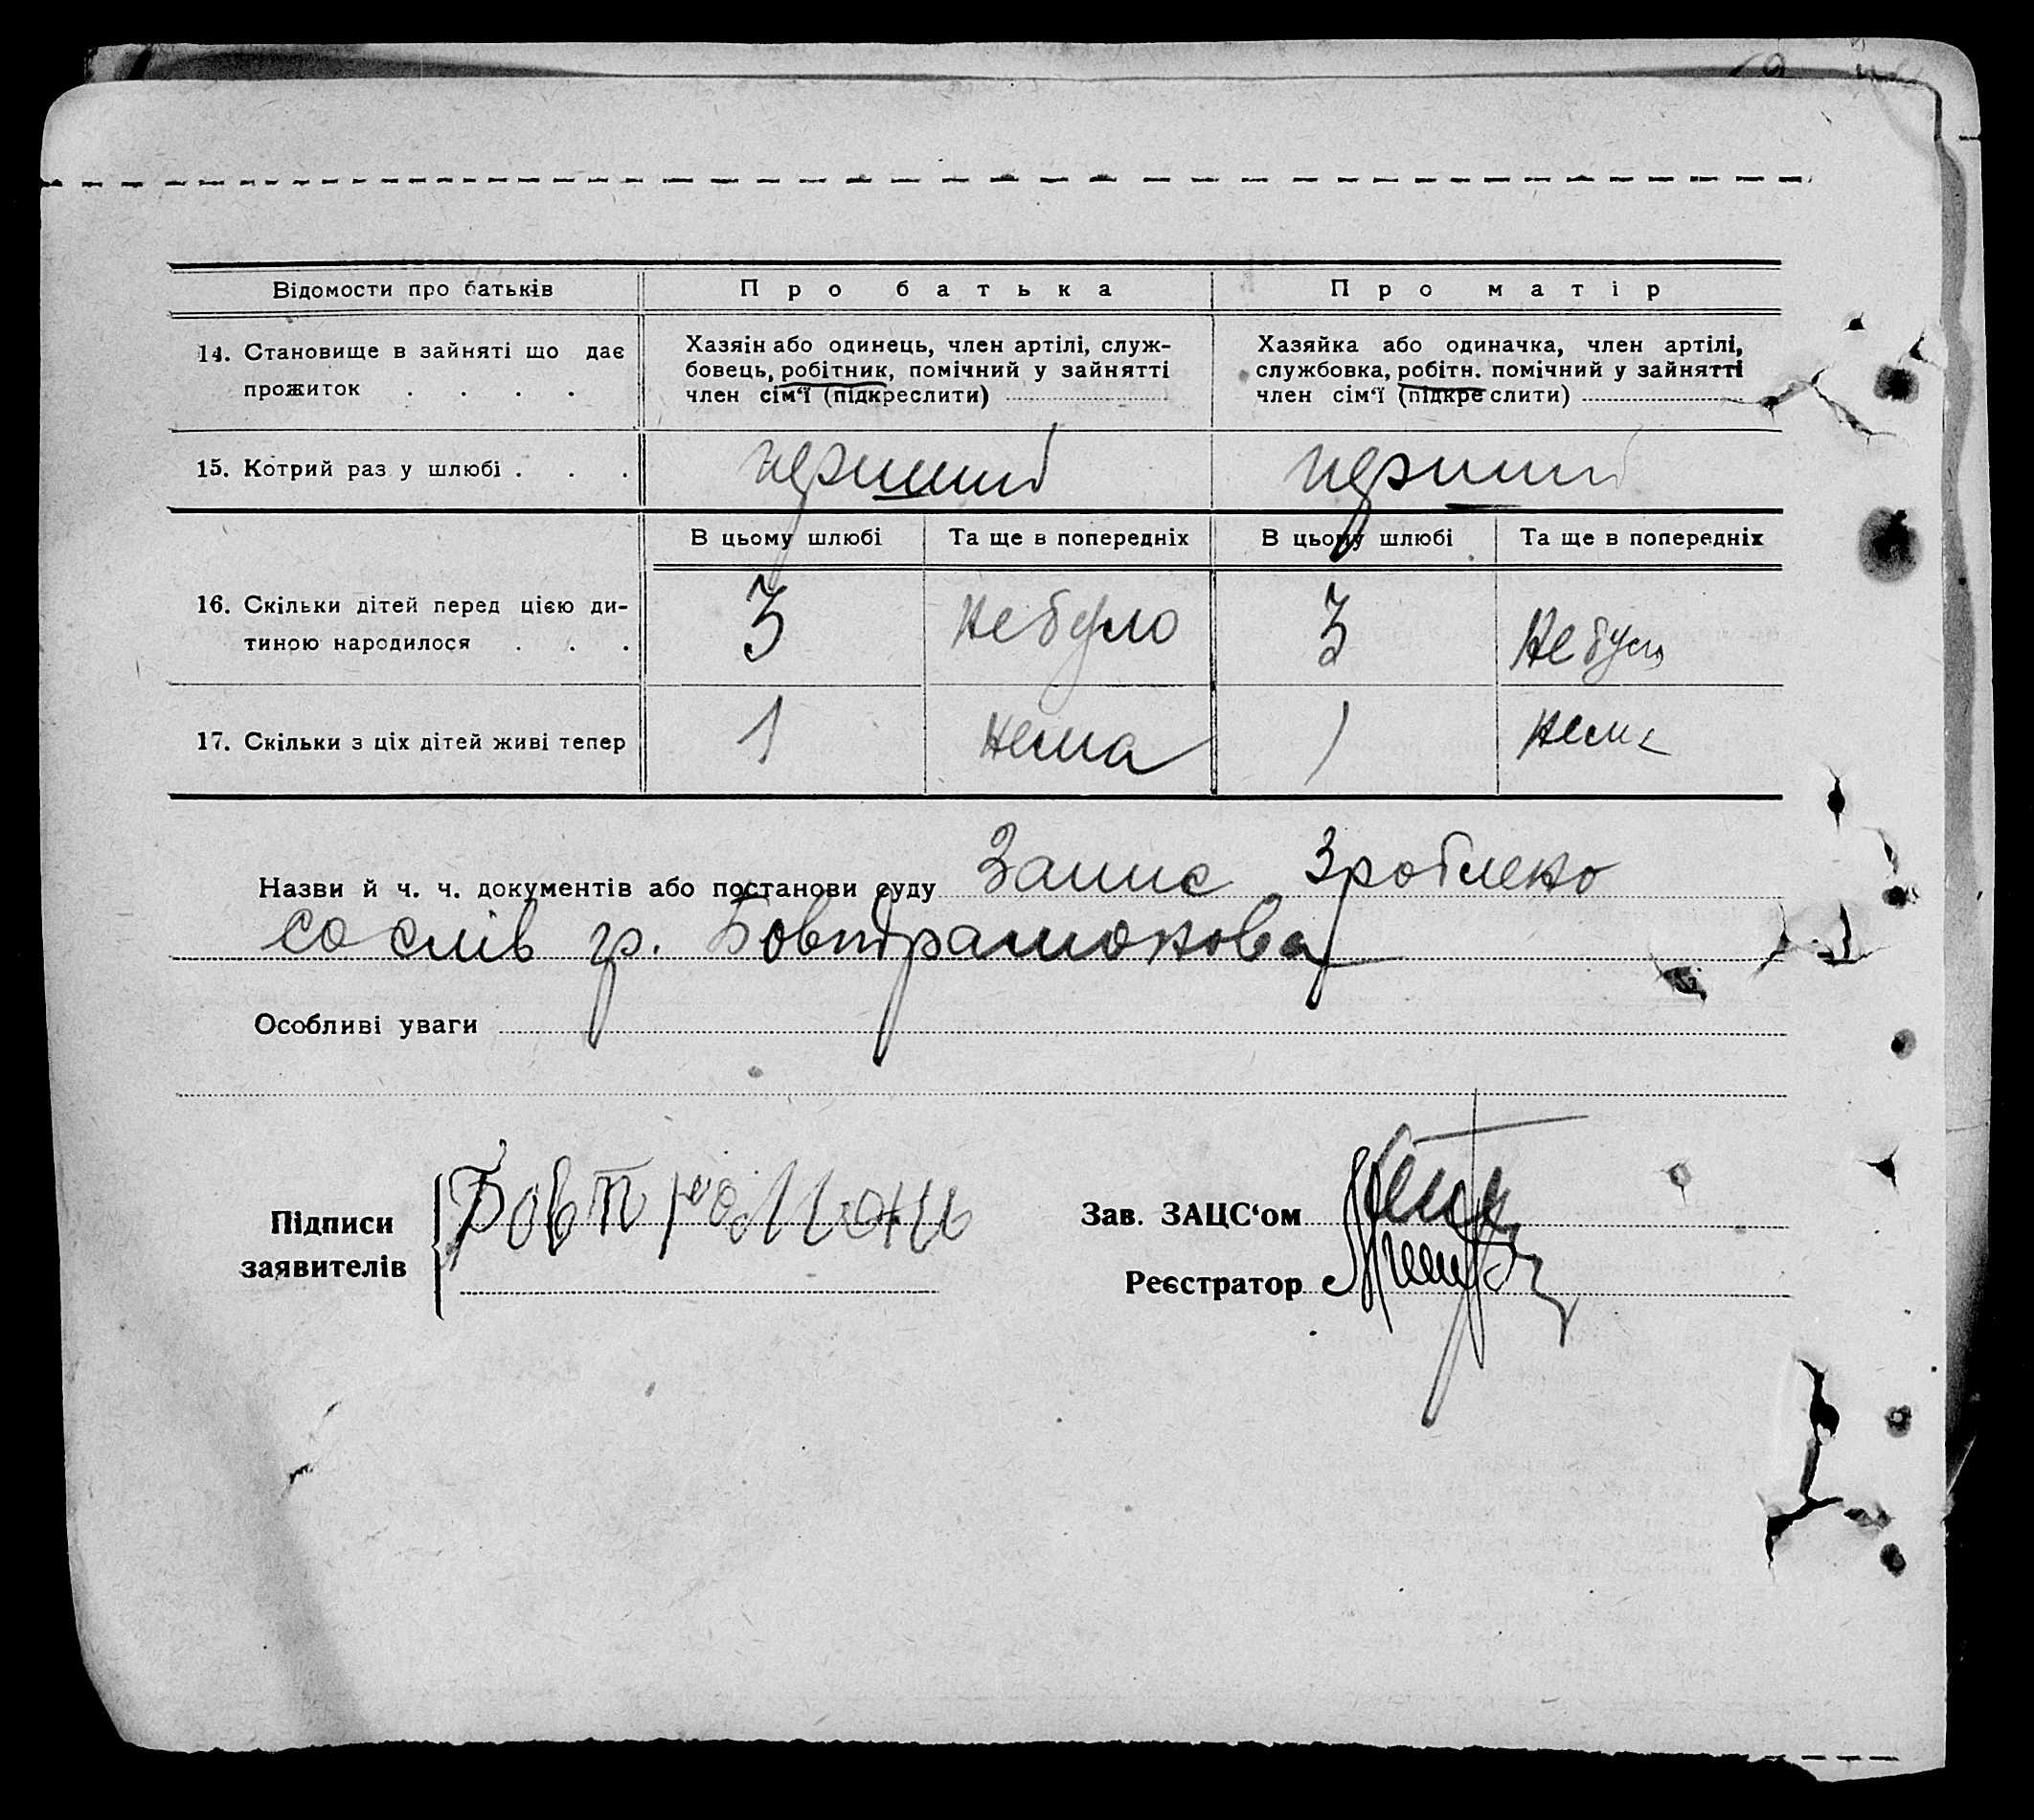 Відомости про батьків
Про батька
Про матір
14. Становище в зайняті що дає
прожиток . . . .
Хазяїн або одинець, член артілі, служ-
бовець, робітник, помічний у зайнятті
член сім‘ї (підкреслити)
Хазяйка або одиначка, член артілі,
службовка, робітн. помічний у зайнятті
член сім‘ї (підкреслити)
15. Котрий раз у шлюбі . . .
перший
перший
В цьому шлюбі
Та ще в попередніх
В цьому шлюбі
Та ще в попередніх
16. Скільки дітей перед цією ди-
тиною народилося . . .
3
не було
3
не було
17. Скільки з ціх дітей живі тепер
1
нема
1
нема
Назви й ч. ч. документів або постанови суду Запис зроблено
со слів гр. Бовтрамюкова
Особливі уваги
Підписи
заявителів
Зав. ЗАЦС‘ом
Реєстратор